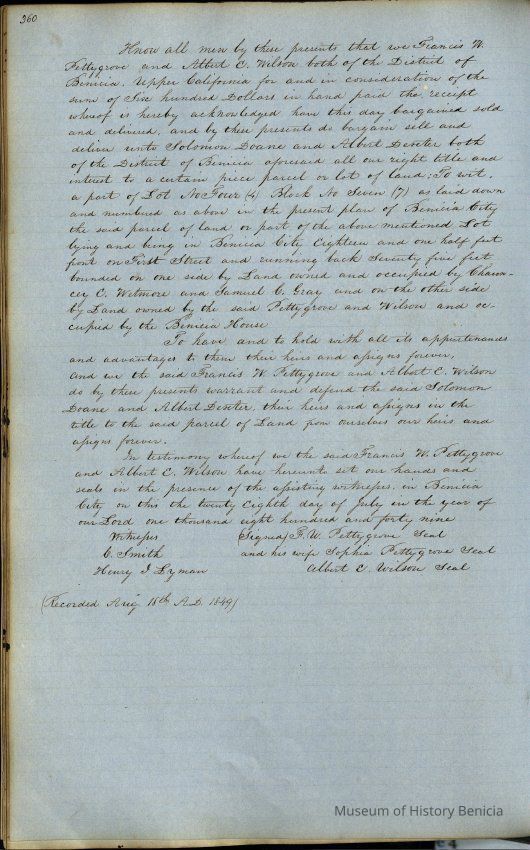 360
Know all men by these presents that we Francis W.
Pettygrove and Albert C. Wilson both of the District of
Benicia, Upper California for and in consideration of the
sum of Six hundred Dollars in hand paid the receipt
whereof is hereby acknowledged have this day bargained sold
and delivered, and by these presents do bargain sell and
deliver unto Solomon Doane and Albert Dexter both
of the District of Benicia aforesaid all our right title and
interest to a certain piece parcel or lot of land; To wit,
a part of Lot No Four (4) Block No Seven (7) as laid down
and numbered as above in the present plan of Benicia City
the said parcel of land or part of the above mentioned Lot
lying and being in Benicia City Eighteen and one half feet
front on First Street and running back Seventy five feet
bounded on one side by Land owned and occupied by Chaun-
cey C. Wetmore and Samuel C. Gray and on the other side
by Land owned by the said Pettygrove and Wilson and oc-
cupied by the Benicia House
To have and to hold with all its appurtenances
and advantages to them their heirs and assigns forever,
and we the said Francis W. Pettygrove and Albert C. Wilson
do by these presents warrant and defend the said Solomon
Doane and Albert Dexter their heirs and assigns in the
title to the said parcel of Land from ourselves our heirs and
assigns forever.
In testimony whereof we the said Francis W. Pettygrove
and Albert C. Wilson have hereunto set our hands and
seals in the presence of the assisting witnesses, in Benicia
City on this the twenty Eighth day of July in the year of
our Lord one thousand eight hundred and forty nine
Witnesses Signed F. W. Pettygrove Seal
C. Smith and his wife Sophia Pettygrove Seal
Henry J Lyman Albert C. Wilson Seal
(Recorded Aug 18th A.D. 1849)
Museum of History Benicia